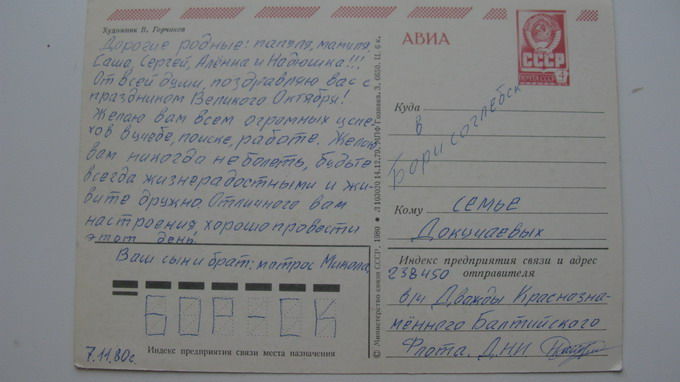 Художник В. Горчаков
Дорогие родные: папуля, мамуля
Саша, Сергей, Алёнка и Надюшка!!!
От всей души, поздравляю вас с
праздником Великого Октября!
Желаю вам всем огромных успе-
хов в учебе, поиске, работе. Желаю
вам никогда не болеть, будьте
всегда жизнерадостными и жи-
вите дружно. Отличного вам
настроения, хорошо провести
этот день.
Ваш сын и брат: матрос Микола
БОР-СК
7.11.80г.
Индекс предприятия связи места назначения
© Министерство связи СССР, 1980
АВИА
ПОЧТА СССР
4
Куда
в
Борисоглебск
Кому
семье
Докучаевых
Индекс предприятия связи и адрес
отправителя
238450
в/ч Дважды Краснозна-
мённого Балтийского
Флота. ДНИ